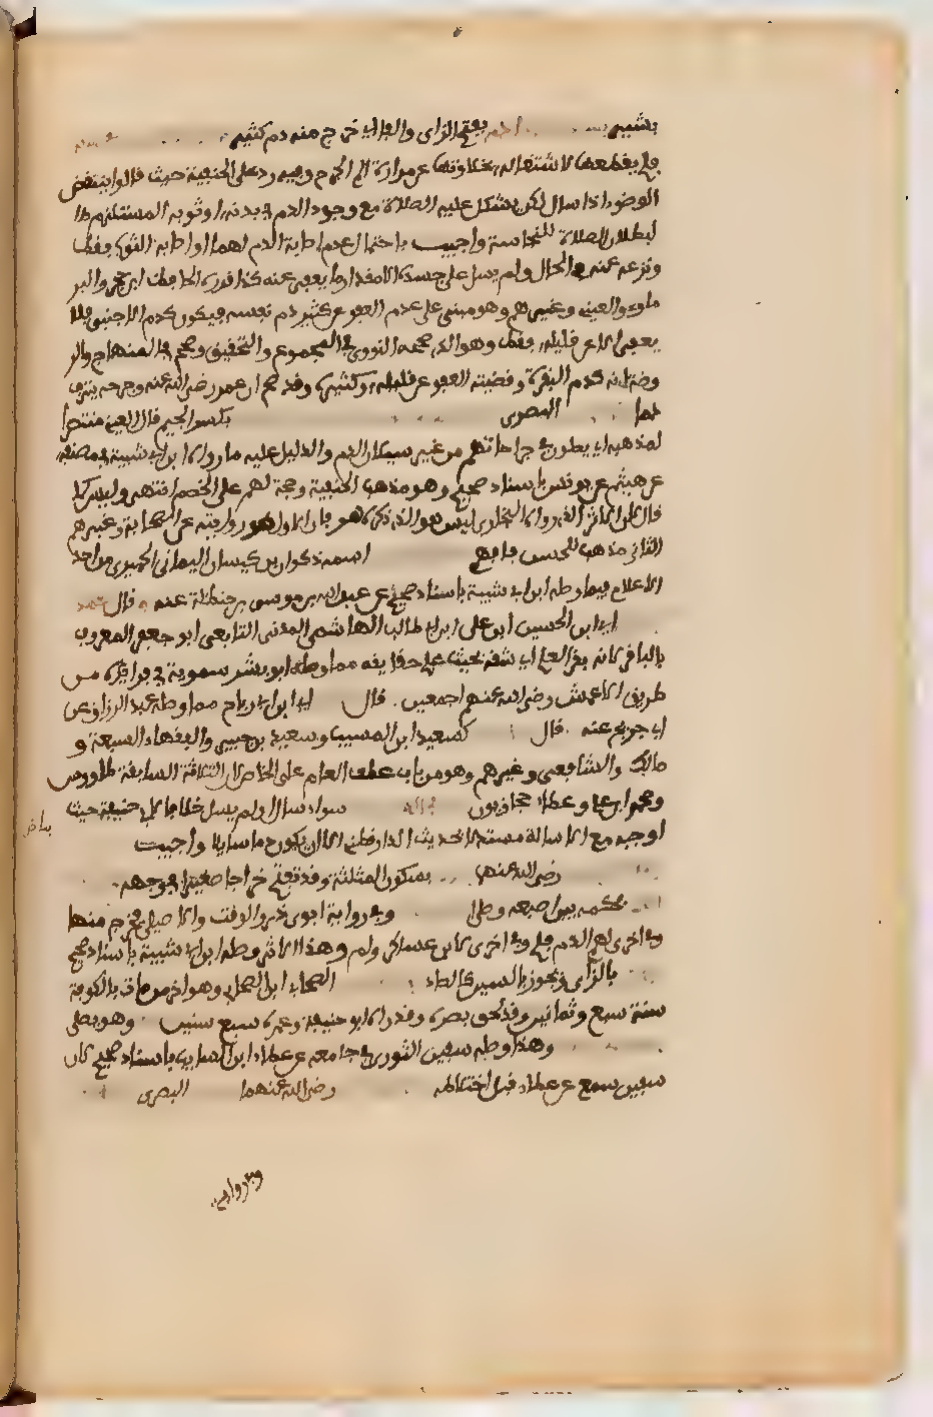 بسهم بفتح الزاي والفا اي خرج منه دم كثير
فلم يقطعها لاشتغاله بحلاوتها عن مرارة الم الجرح وفيه رد على الحنفية حيث قالوا ينتقض
الوضو اذا سال لكن يشكل عليه الصلاة مع وجود الدم في بدنه او ثوبه المستلزم
لبطلان الصلاة للنجاسة واجيب باحتمال عدم اصابة الدم لهما او اصابة الثوب فقط
ونزعه عنه في الحال ولم يسل على جسده الا مقدار ما يعفى عنه كذا قرره الحافظ ابن حجر والبر
ماوي والعيني وغيرهم وهو مبني على عدم العفو عن كثير دم نفسه فيكون كدم الاجنبي فلا
يعفى الا عن قليله فقط وهو الذي صححه النووي في المجموع والتحقيق وصحح في المنهاج والر
وضة انه كدم البثرة وقضيته العفو عن قليله وكثيره وقد صح ان عمر رضي الله عنه وجرحه ينزف
دما البصري بكسر الجيم قال العيني منتصرا
لمذهبه اي يصلون في جراحاتهم من غير سيلان الدم والدليل عليه ما رواه ابن ابي شيبة في مصنفه
عن هشيم عن يونس باسناد صحيح وهو مذهب الحنفية وحجة لهم على الخصم انتهى وليس كما
قال لان الاثر الذي رواه البخاري ليس هو الذي ذكره هو فان الاول هو روايته عن الصحابة وغيرهم
الثاني مذهب للحسن فافهم اسمه ذكوان بن كيسان اليماني الحميري من احد
الاعلام فيما وصله ابن ابي شيبة باسناد صحيح عن عبيد الله بن موسى بن حنظلة عنه قال
اي ابن الحسين ابن علي ابن ابي طالب الهاشمي المدني التابعي ابو جعفر المعروف
بالباقر لانه بقر العلم اي شقه بحيث علم حقايقه مما وصله ابو بشر سموية في فوائده من
طريق الاعمش رضي الله عنهم اجمعين قال اي ابن ابي رباح مما وصله عبد الرزاق عن
ابن جريج عنه قال كسعيد ابن المسيب وسعيد بن جبير والفقهاء السبعة و
مالك والشافعي وغيرهم وهو من باب عطف العام على الخاص لان الثلاثة السابقة طاووس
ومحمد ابن علي وعطاء حجازيون سواء سال او لم يسل خلافا لابي حنيفة حيث
اوجبه مع الاسالة مستدلا بحديث الدارقطني الا ان يكون دما سايلا واجيب
بياض
رضي الله عنهما بسكون المثلثة وقد تفتح خراجا صغيرا بوجهه
بحكمه بين اصبعه وصلى وفي رواية ابوي ذر والوقت والاصيلي فخرج منها
وفي اخرى لهم الدم فلم وفي اخرى لابن عساكر ولم وهذا الاثر وصله ابن ابي شيبة باسناد صحيح
بالزاي ويجوز بالسين كالصاد الصحابي ابن الصحابي وهو اخر من مات بالكوفة
سنة سبع وثمانين وقد كف بصره وقد راه ابو حنيفة وعمره سبع سنين وهو يصلي
وهذا وصله سفين الثوري في جامعه عن عطاء ابن السايب باسناد صحيح لان
سفين سمع عن عطاء قبل اختلاطه رضي الله عنهما البصري